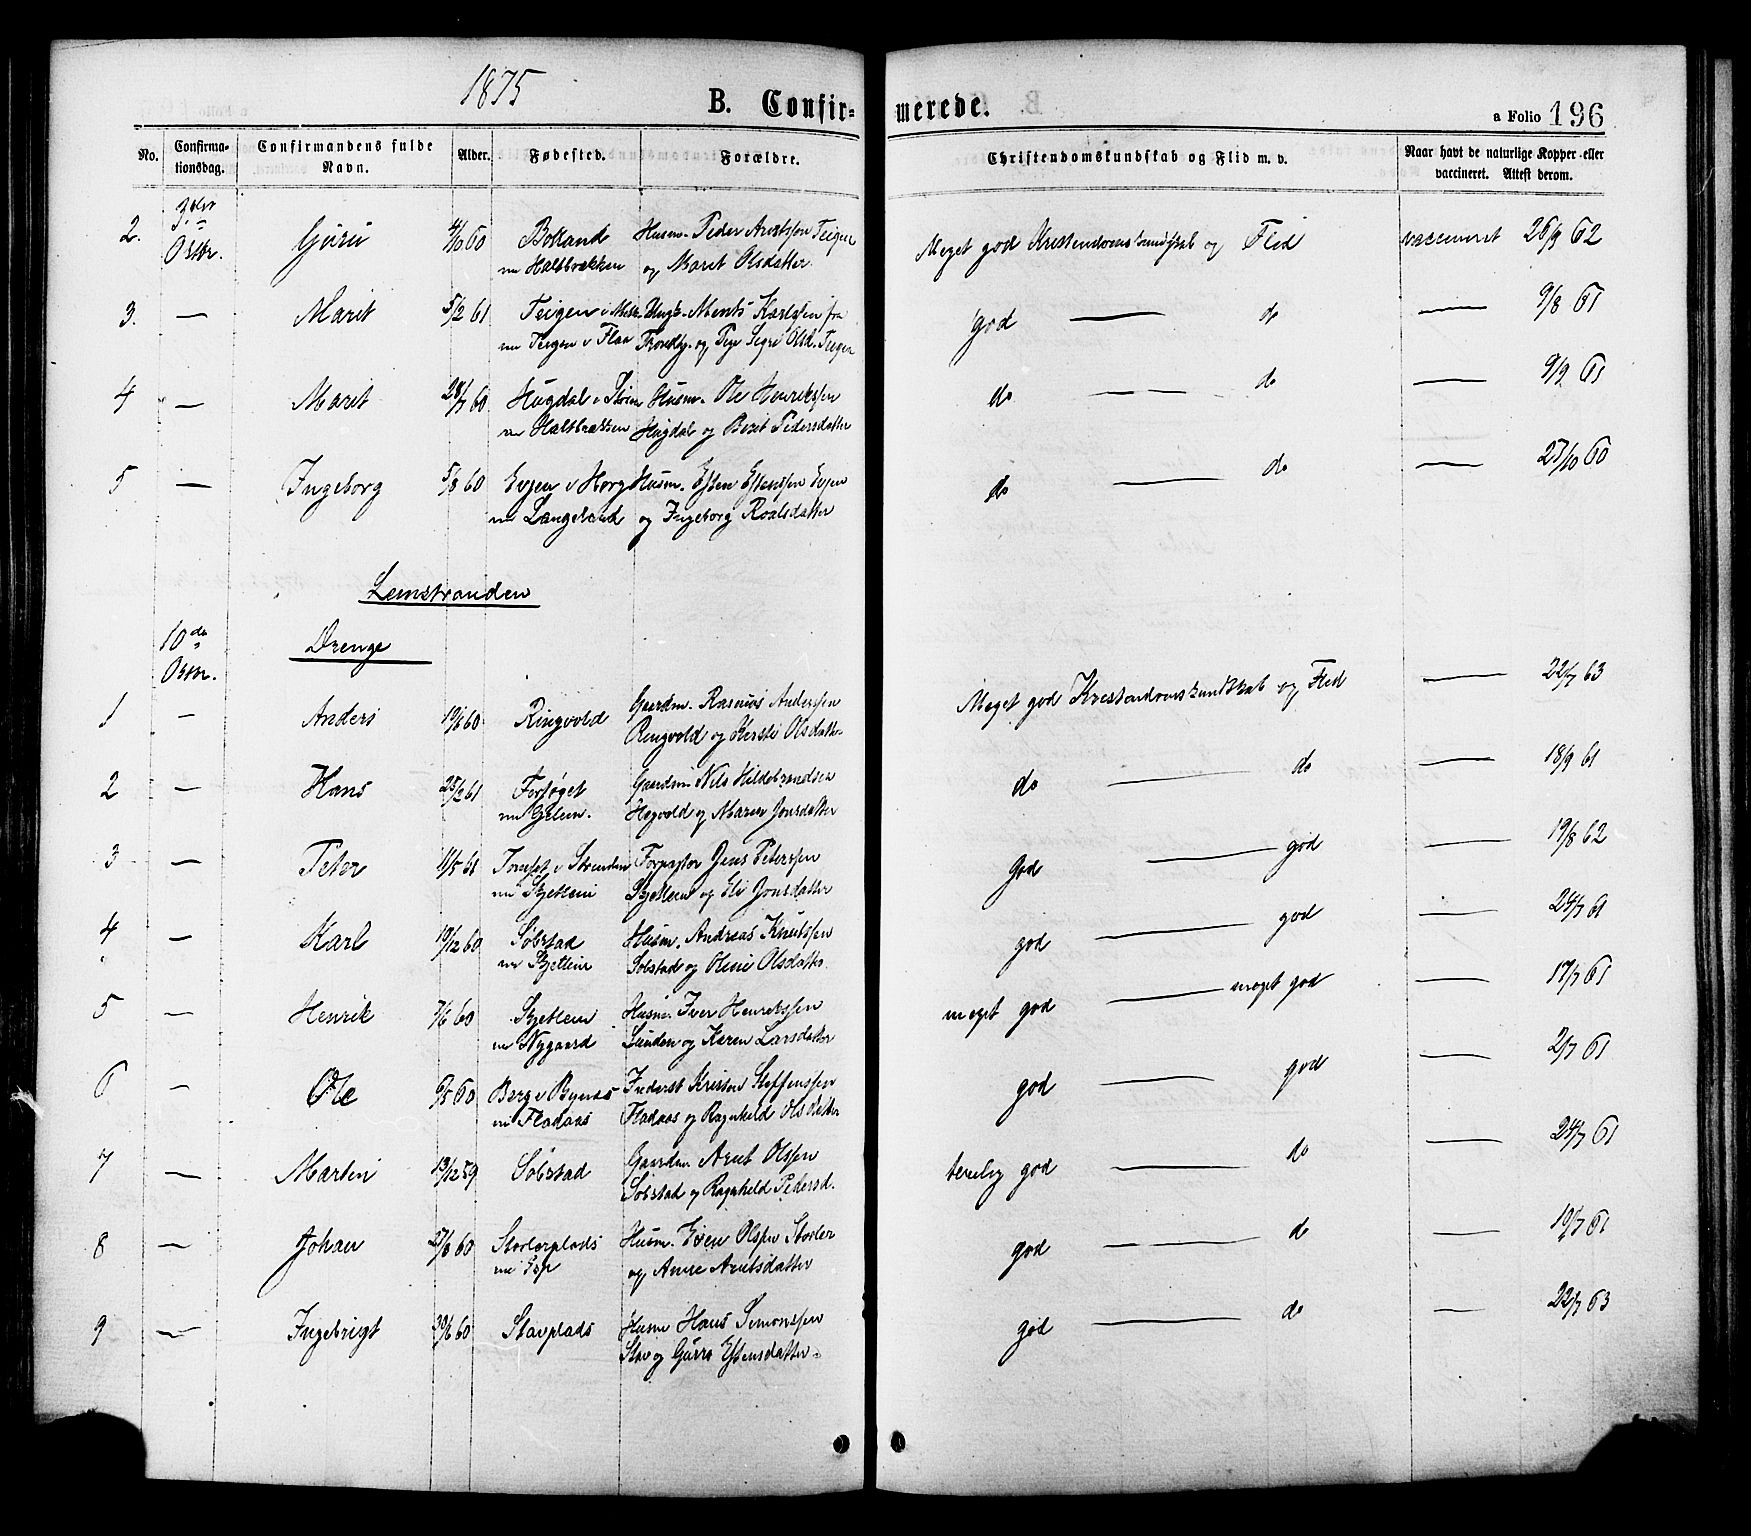 1875
B. Confir=
merede.
a Folio 196
No. Confirma-tionsdag. Confirmandens fulde Navn. Alder. Fødested. Forældre. Christendomskundskab og Flid m. v. Naar havt de naturlige Kopper eller vaccineret. Attest derom.
2. 3die Octbr. Guru 4/10 60 Husm. Peder Arntssen Teigen Meget god Kristendomskundskab og Flid vaccineret 26/9 62
nu Haltbrækken og Marit Olsdatter
3. — Marit 5/2 61 Teigen i Mel. Ungk. Ments Karlssen fra god — do — 9/8 61
nu Teigen i Flaa Trondhj. og Pige Sigri Olsd. Teigen
4 — Marit 28/7 60 Hugdal i Husm. Ole Henrikssen do — do — 9/9 61
nu Haltbrækken Hugdal og Berit Pedersdatter
5 — Ingeborg 5/8 60 Evjen i Horg Husm. Esten Estenssen Evjen do — do — 27/10 60
nu Langeland og Ingeborg Roalsdatter
Lenstranden
10de Octbr.
Drenge
1 — Anders 19/6 60 Ringvold Gaardm. Rasmus Anderssen Meget god Kristendomskundskab og Flid — 22/7 63
Ringvold og Kirsti Olsdatter
2 — Hans 25/2 61 Forsøget Gaardm. Nils Hildebrandsen do — do — 18/9 61
Hegvold og Maren Jonsdatter
3 — Peter 11/5 61 i Stranden Forpagter Jens Peterssen God — god — 19/8 62
nu Skjetlein Skjetlein og Eli Jonsdatter
4 — Karl 19/12 60 Søbstad Husm. Andreas Knutssen god — god — 24/7 61
nu Skjetlein Søbstad og Oline Olsdatter
5 — Henrik 7/6 60 Skjetlein Husm. Iver Henrikssen meget god — meget god — 17/7 61
nu Nygaard Lunden og Karen Larsdatter
6 — Ole 6/5 60 Berg i Bynes Inderst Kristen Steffenssen god — god — 2/7 61
nu Fladaas Fladaas og Ragnhild Olsdatter
7 — Martin 13/12 59 Søbstad Gaardm. Arnt Olssen temlig god — do — 24/7 61
Søbstad og Ragnhild Pedersd.
8 — Johan 27/6 60 Storlerplads Husm. Even Olssen Storler god — do — 19/7 61
nu Esp og Anne Arntsdatter
9 — Ingebrigt 30/6 60 Stavplads Husm Hans Simonssen god — do — 22/7 63
Stav og Gurro Estensdatter